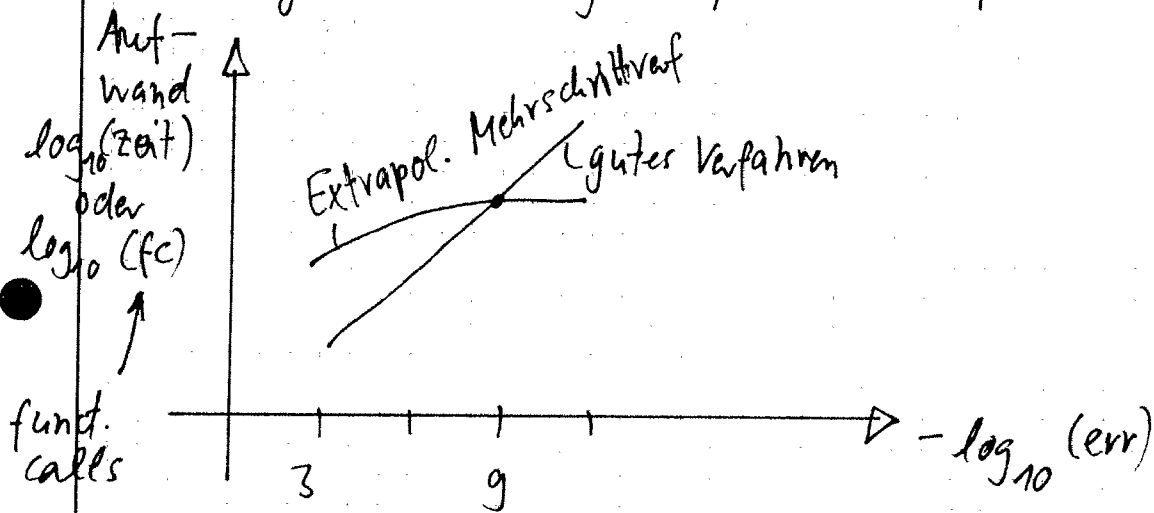 Auf-
wand
log₁₀(zeit)
oder
log₁₀ (fc)
funct.
calls
Extrapol. Mehrschrittverf
gutes Verfahren
3
9
- log₁₀ (err)